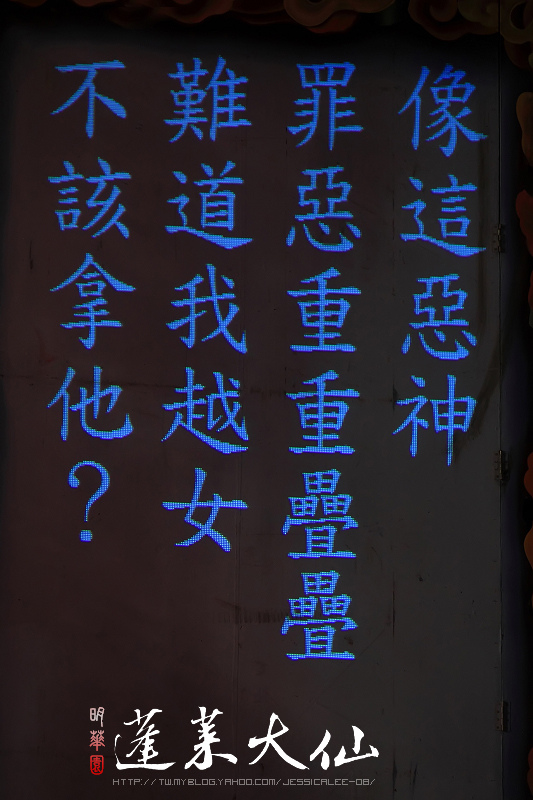 像這惡神
罪惡重重疊疊
難道我越女
不該拿他？
明華園
蓬萊大仙
HTTP://TW.MYBLOG.YAHOO.COM/JESSICALEE-08/